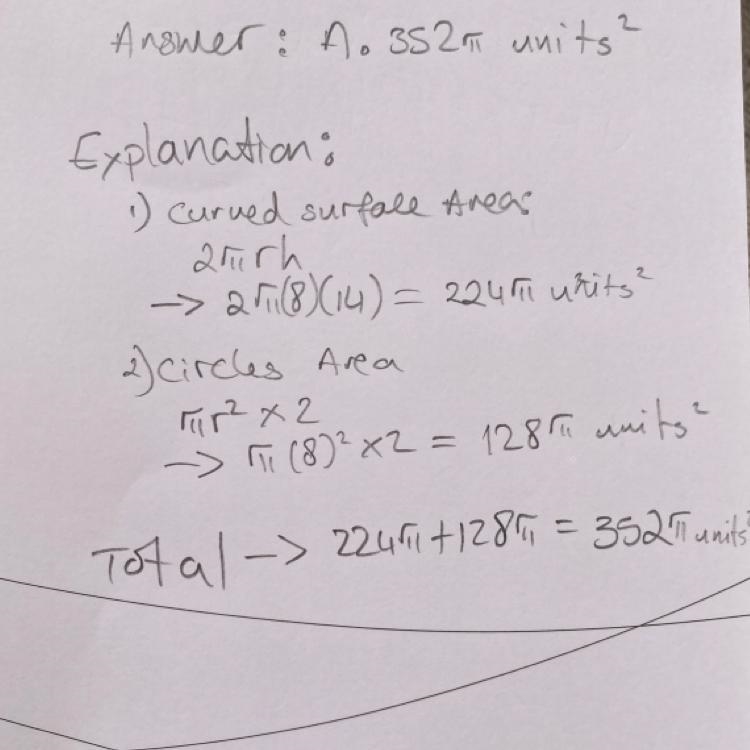 Answer : A. 352π units²
Explanation:
1) Curved surface Area:
2πrh
→ 2π(8)(14) = 224π units²
2) Circles Area
πr² × 2
→ π(8)² × 2 = 128π units²
Total → 224π + 128π = 352π units²